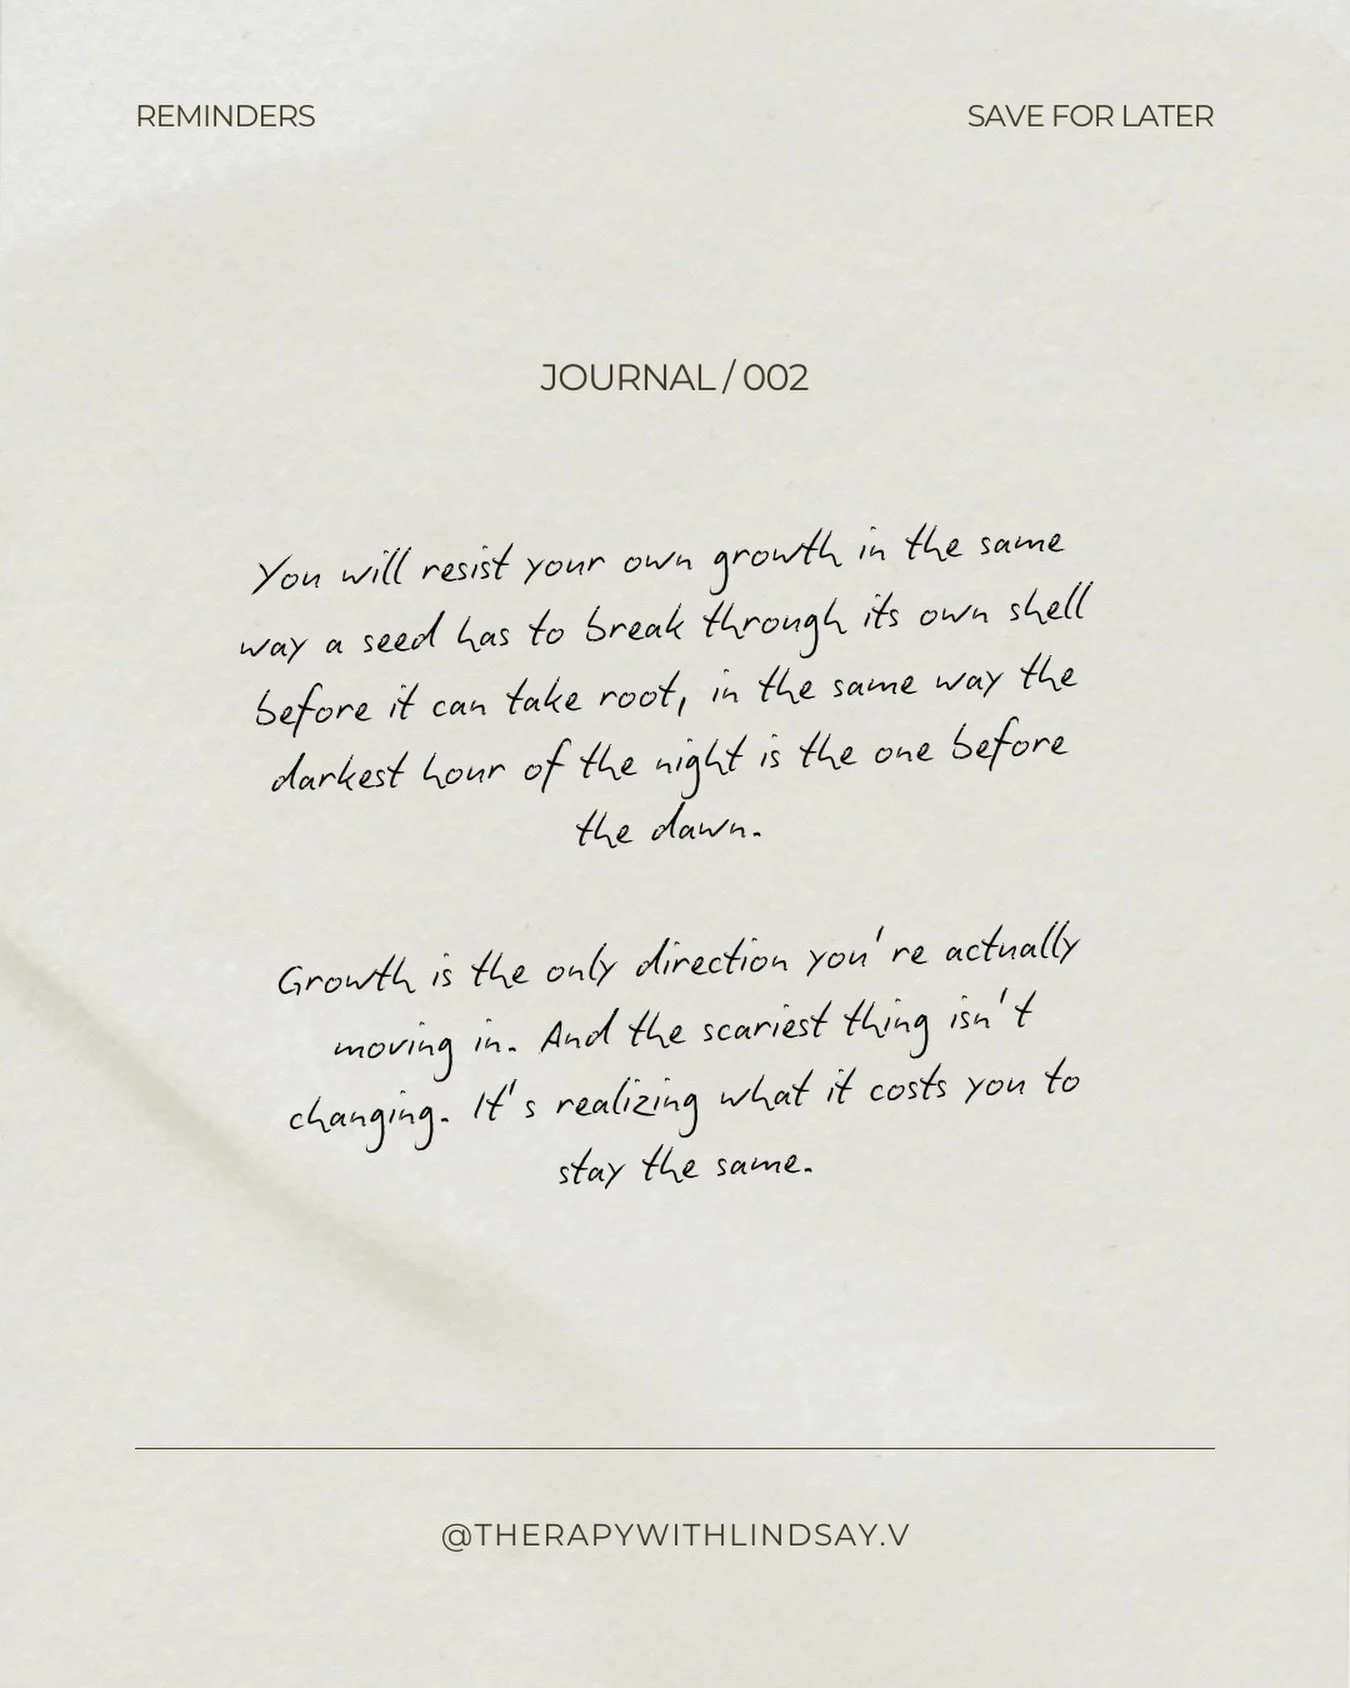 REMINDERS
SAVE FOR LATER
JOURNAL / 002
You will resist your own growth in the same
way a seed has to break through its own shell
before it can take root, in the same way the
darkest hour of the night is the one before
the dawn.
Growth is the only direction you're actually
moving in. And the scariest thing isn't
changing. It's realizing what it costs you to
stay the same.
@THERAPYWITHLINDSAY.V